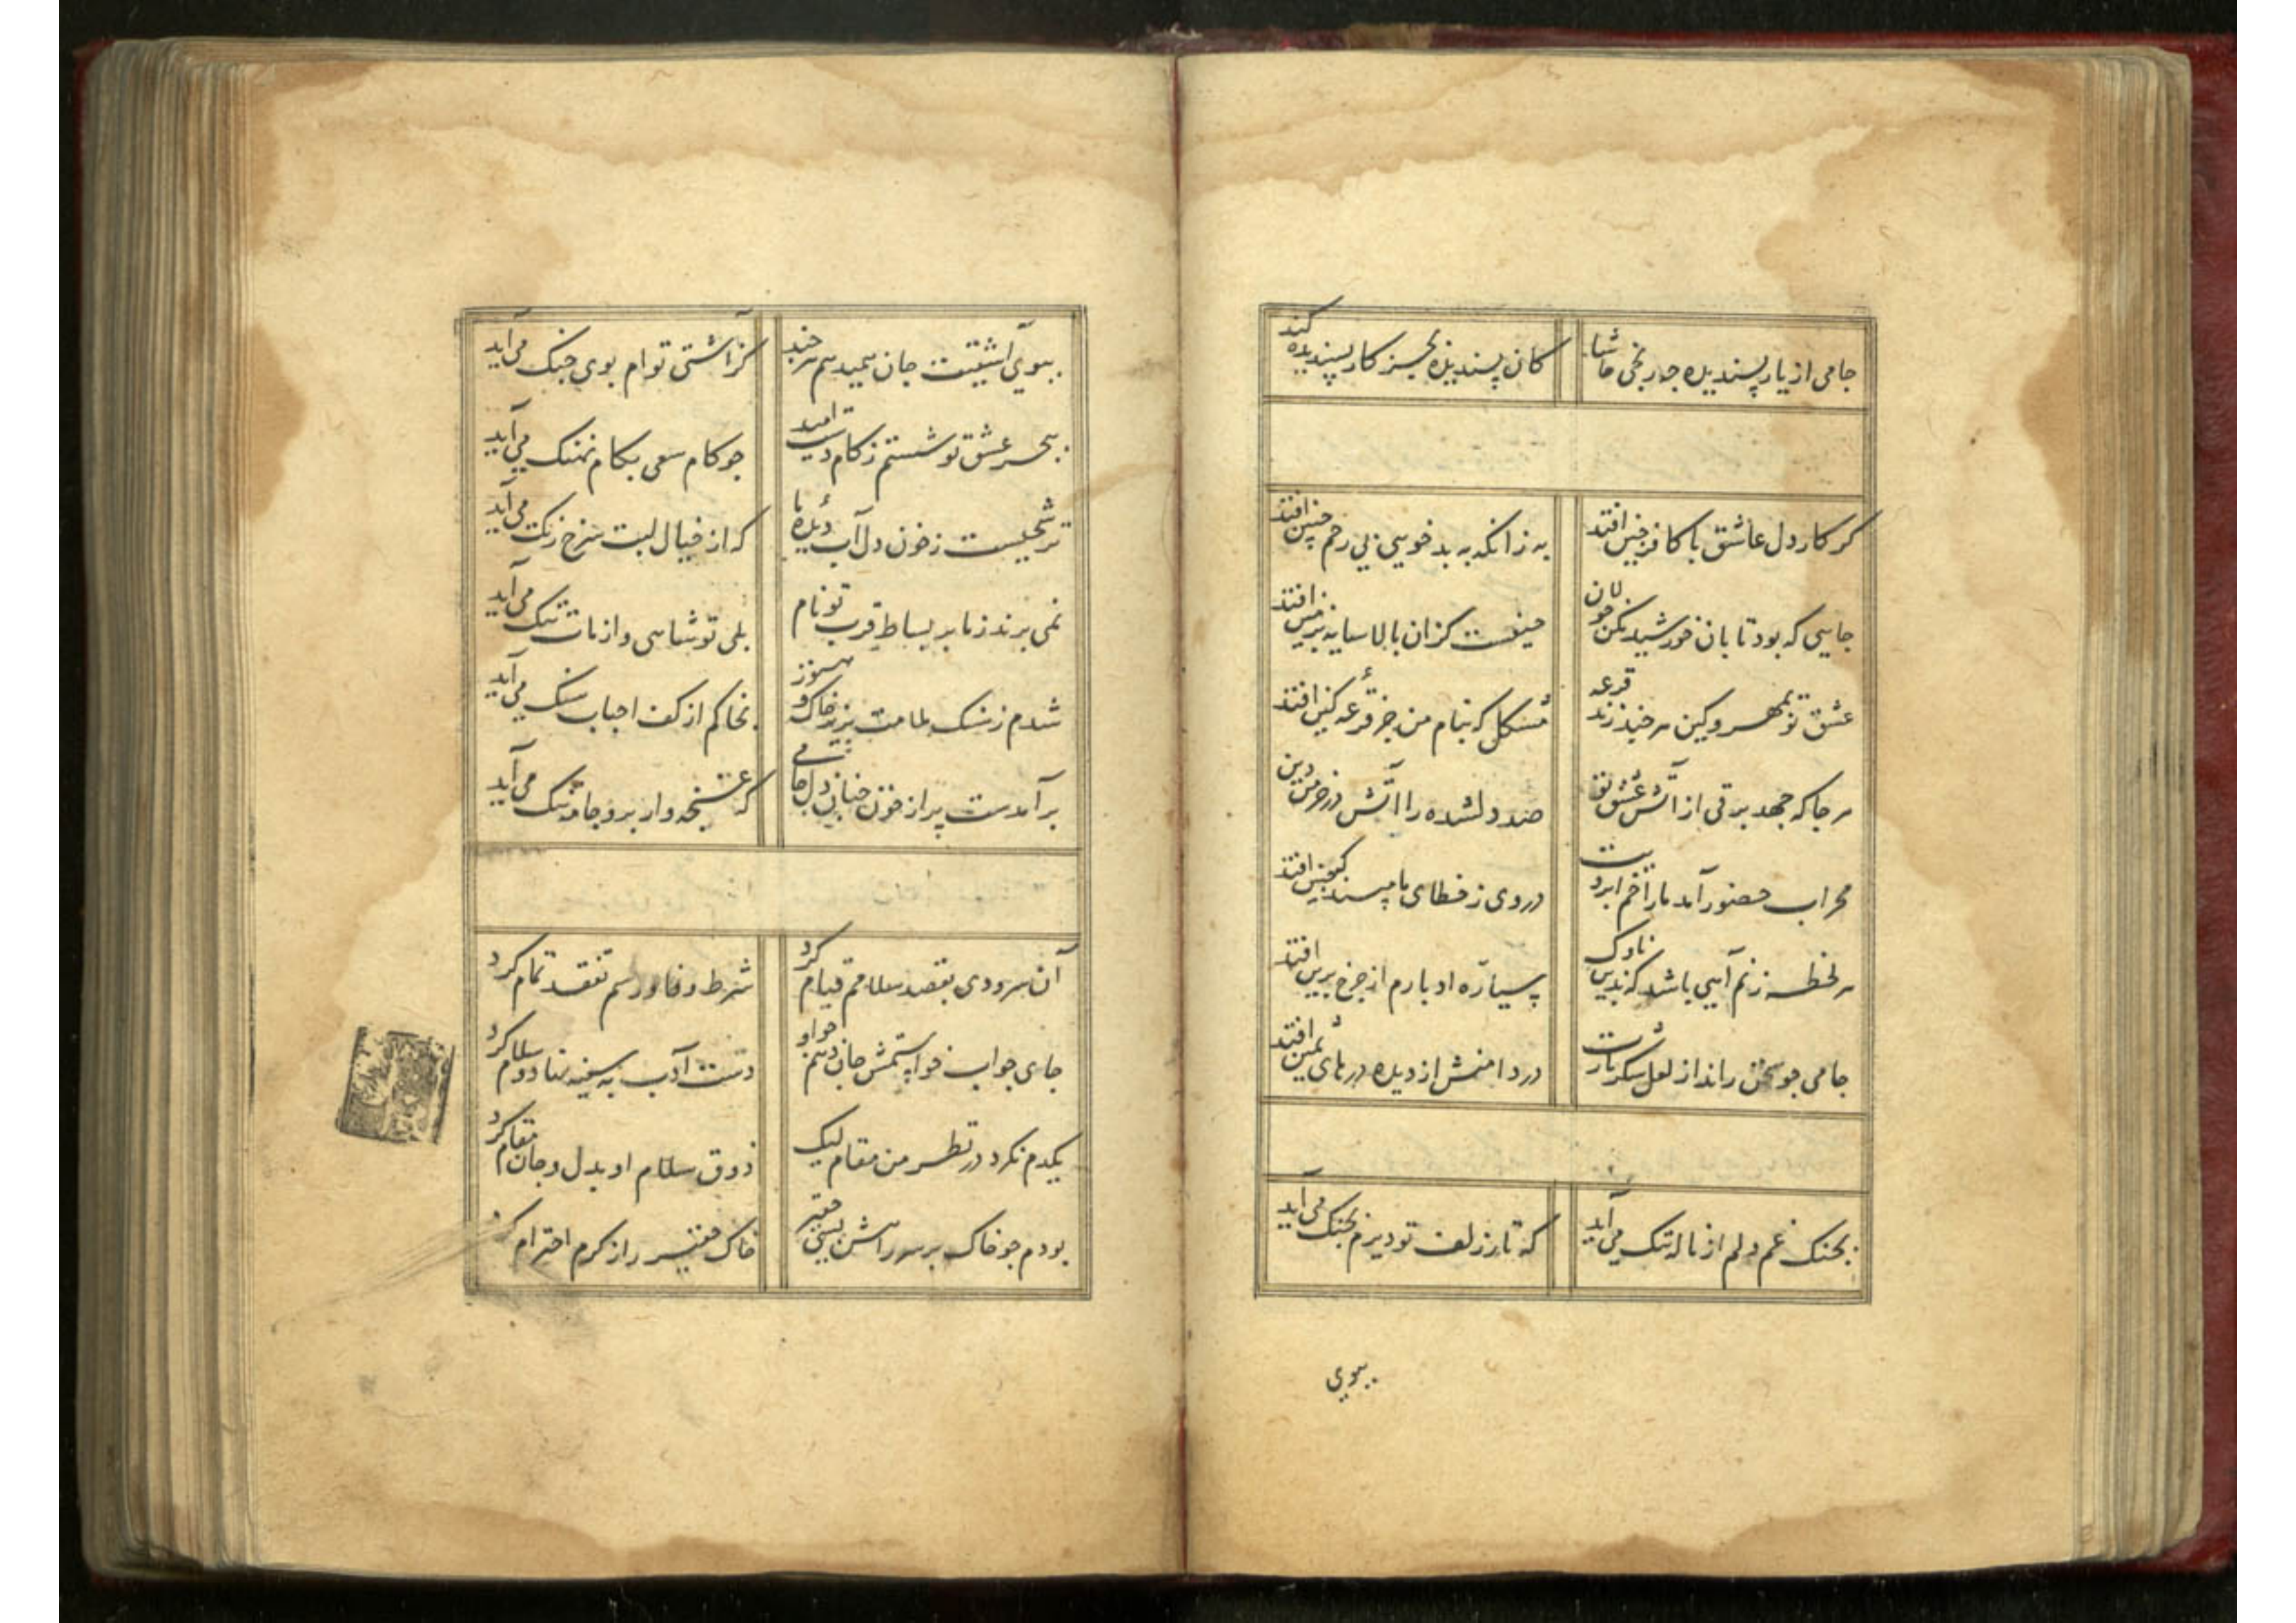 جامی از یار پسندیده چه رنجی حاشا
کان پسندیده بجز کار پسندیده کند
گر کار دل عاشق با کافر چین افتد
به زانکه به بدخویی بی رحم چنین افتد
جایی که بود تابان خورشید مکن جولان
حیفست کزان بالا سایه بزمین افتد
عشق تو بمهر و کین هر چند زند قرعه
مشکل که بنام من جز قرعه کین افتد
هر جا که جهد برقی از آتش عشق تو
صد دلشده را آتش در خرمن دین افتد
محراب حضور آمد ما را خم ابرویت
در وی ز خطای ما مپسند که چین افتد
هر لحظه زنم آهی باشد که بدین ناوک
سیاره ادبارم از چرخ برین افتد
جامی چو سخن راند از لعل شکربارت
در دامنش از دیده درهای ثمین افتد
بچنگ غم دلم از ناله تنگ می آید
که تار زلف تو دیرم بچنگ می آید
ببوی
ببوی آشتیت جان همیدهم هر چند
کز آشتی توام بوی جنگ می آید
ببحر عشق تو شستم ز کام دست امید
چو کام سعی بکام نهنگ می آید
ترشحیست ز خون دل آب دیده ما
که از خیال لبت سرخ رنگ می آید
نمی برند ز ما بر بساط قرب تو نام
بلی تو شاهی و از مات ننگ می آید
شدم ز سنگ ملامت بزیر خاک و هنوز
بخاکم از کف احباب سنگ می آید
بر آمدست پر از خون چنان دل جامی
که غنچه وار برو جامه تنگ می آید
آن سرو دی بقصد سلامم قیام کرد
شرط وفا و رسم تفقد تمام کرد
جای جواب خواستمش جان دهم چو او
دست ادب به سینه نهاد و سلام کرد
یکدم نکرد در نظر من مقام لیک
ذوق سلام او بدل و جان مقام کرد
بودم چو خاک بر سر راهش بسی حقیر
خاک حقیر را ز کرم احترام کرد